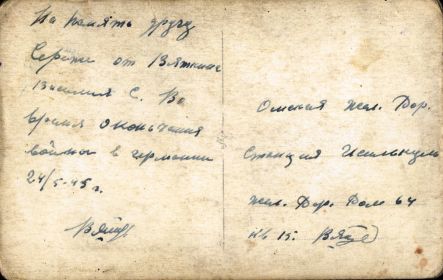 На память другу
Сереже от Вяткина
Василия С. Во
время окончания
войны в германии
24/5-45 г.
Омская жел. Дор.
Станция Исилькуль
жел. Дор. Дом 64
кв 15.